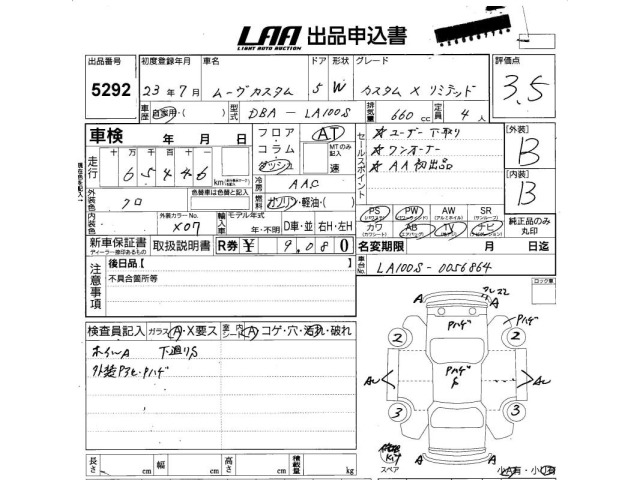 LAA 出品申込書
LIGHT AUTO AUCTION
出品番号 初度登録年月 車名 ドア 形状 グレード 評価点
5292 23年7月 ムーヴカスタム 5 W カスタム X リミテッド 3.5
車歴 自家用・( ) 型式 DBA-LA100S 排気量 660cc 定員 4人
車検 年 月 日 フロア・コラム・ダッシュ AT セールスポイント ☆ユーザー下取り 【外装】
走行 十 万 千 百 十 一 MTのみ記入 速 ☆ワンオーナー B
65446 km ☆AA初出品 【内装】
冷房 AAC B
外装色 クロ 色替車は色替と記入 燃料 ガソリン・軽油・( )
PS PW AW SR 純正品のみ丸印
(パワーステ) (パワーウィンド) (アルミホイル) (サンルーフ)
内装色 外装カラーNo. X07 輸入車 モデル年式 年・不明 D車・並 右H・左H カワ AB TV ナビ
(カワシート) (エアバッグ) (テレビ) (ナビゲーション)
新車保証書 取扱説明書 R券 ¥ 9,080 名変期限 月 日迄
ディーラー捺印あるもの
注意事項 後日品【 】 車台No. LA100S-0056864
不具合箇所等 ロック車
検査員記入 ガラス A・X要ス 室内シート A コゲ・穴・汚れ・破れ
ホイルA 下廻りS
外装Pアセ・Pハゲ
A A
Pハゲ Pハゲ
2 2
Pハゲ
S
3 3
A A
スペア
長さ cm 幅 cm 高さ cm 積載量 kg